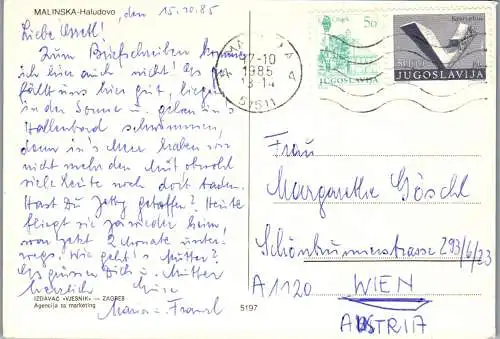 MALINSKA-Haludovo
, den 15.10.85
Liebe
Zum Briefschreiben komme
ich hier auch nicht! Es ge-
fällt uns hier gut, liegen
in der Sonne u. gehen in's
Hallenbad schwimmen,
denn in's Meer haben wir
nicht mehr den Mut obwohl
viele Leute noch dort baden.
Hast Du Jetty getroffen? Heute
fliegt sie ja wieder heim,
war jetzt 2 Monate unter-
wegs. Wie geht's Mutter?
Es grüssen Dich u. Mutter
herzlich Eure
u. Franzl
IZDAVAČ «VJESNIK» — ZAGREB
Agencija za marketing
5197
17-10
1985
13-14
51511
50
JUGOSLAVIJA
JUGOSLAVIJA
Frau
Margarethe Göschl
Schönbrunnerstrasse 293/6/23
A 1120 WIEN
AUSTRIA